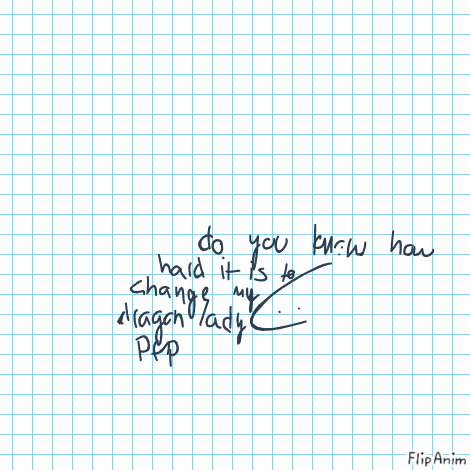 do you know how
hard it is to
change my
dragon lady
PFP
FlipAnim